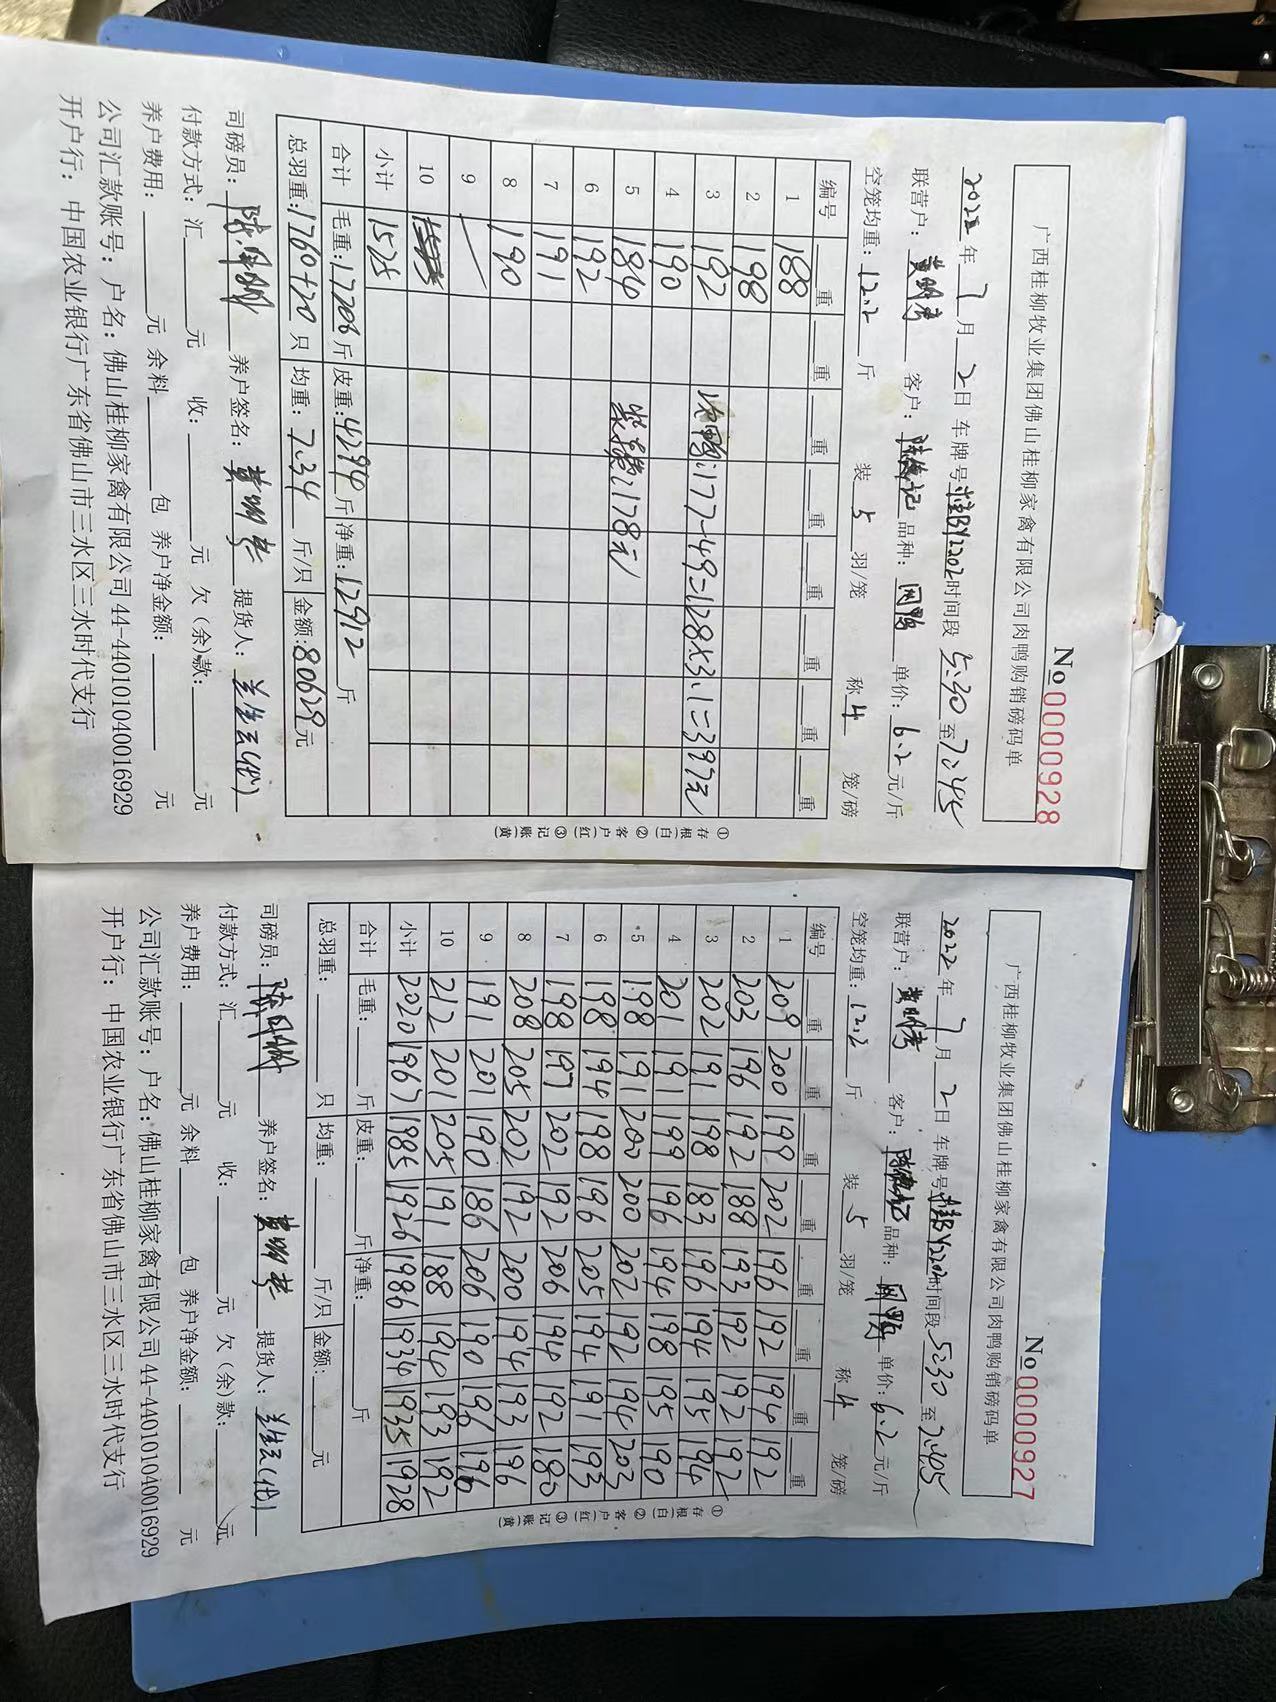 №00000928
广西桂柳牧业集团佛山桂柳家禽有限公司肉鸭购销磅码单
2022年7月2日 车牌号桂BY2202时间段5:30至7:45
联营户：黄明孝 客户：陈德记 品种：网鸭 单价：6.2元/斤
空笼均重：12.2斤 装5羽/笼 称4笼/磅
编号 重 重 重 重 重 重 重 重
1 188
2 198
3 192 次鸭:177-49=128×3.1=397元
4 190
5 184 178元
6 192
7 191
8 190
9
10
小计 1525
合计 毛重:17206斤 皮重:4294斤 净重:12912斤
总羽重:1760+20只 均重:7.34斤/只 金额:80629元
司磅员： 养户签名：黄明孝 提货人：
付款方式：汇 元 收： 元 欠（余）款： 元
养户费用： 元 余料 包 养户净金额： 元
公司汇款账号：户名：佛山桂柳家禽有限公司44-440101040016929
开户行：中国农业银行广东省佛山市三水区三水时代支行
①存根（白）②客户（红）③记账（黄）
№00000927
广西桂柳牧业集团佛山桂柳家禽有限公司肉鸭购销磅码单
2022年7月2日 车牌号桂BY2202时间段5:30至7:45
联营户：黄明孝 客户：陈德记 品种：网鸭 单价：6.2元/斤
空笼均重：12.2斤 装5羽/笼 称4笼/磅
编号 重 重 重 重 重 重 重 重
1 209 200 199 202 196 192 194 192
2 203 196 192 188 193 192 192 192
3 202 191 198 183 196 194 195 194
4 201 191 199 196 194 198 195 190
5 198 191 200 200 202 192 194 202
6 198 194 198 196 205 194 191 193
7 198 197 202 192 206 194 192 180
8 208 205 202 192 200 194 193 196
9 191 201 190 186 206 190 196 196
10 212 201 205 191 188 194 193 192
小计 2020 1967 1985 1926 1986 1934 1935 1928
合计 毛重： 斤 皮重： 斤 净重： 斤
总羽重： 只 均重： 斤/只 金额： 元
司磅员： 养户签名：黄明孝 提货人：
付款方式：汇 元 收： 元 欠（余）款： 元
养户费用： 元 余料 包 养户净金额： 元
公司汇款账号：户名：佛山桂柳家禽有限公司44-440101040016929
开户行：中国农业银行广东省佛山市三水区三水时代支行
①存根（白）②客户（红）③记账（黄）